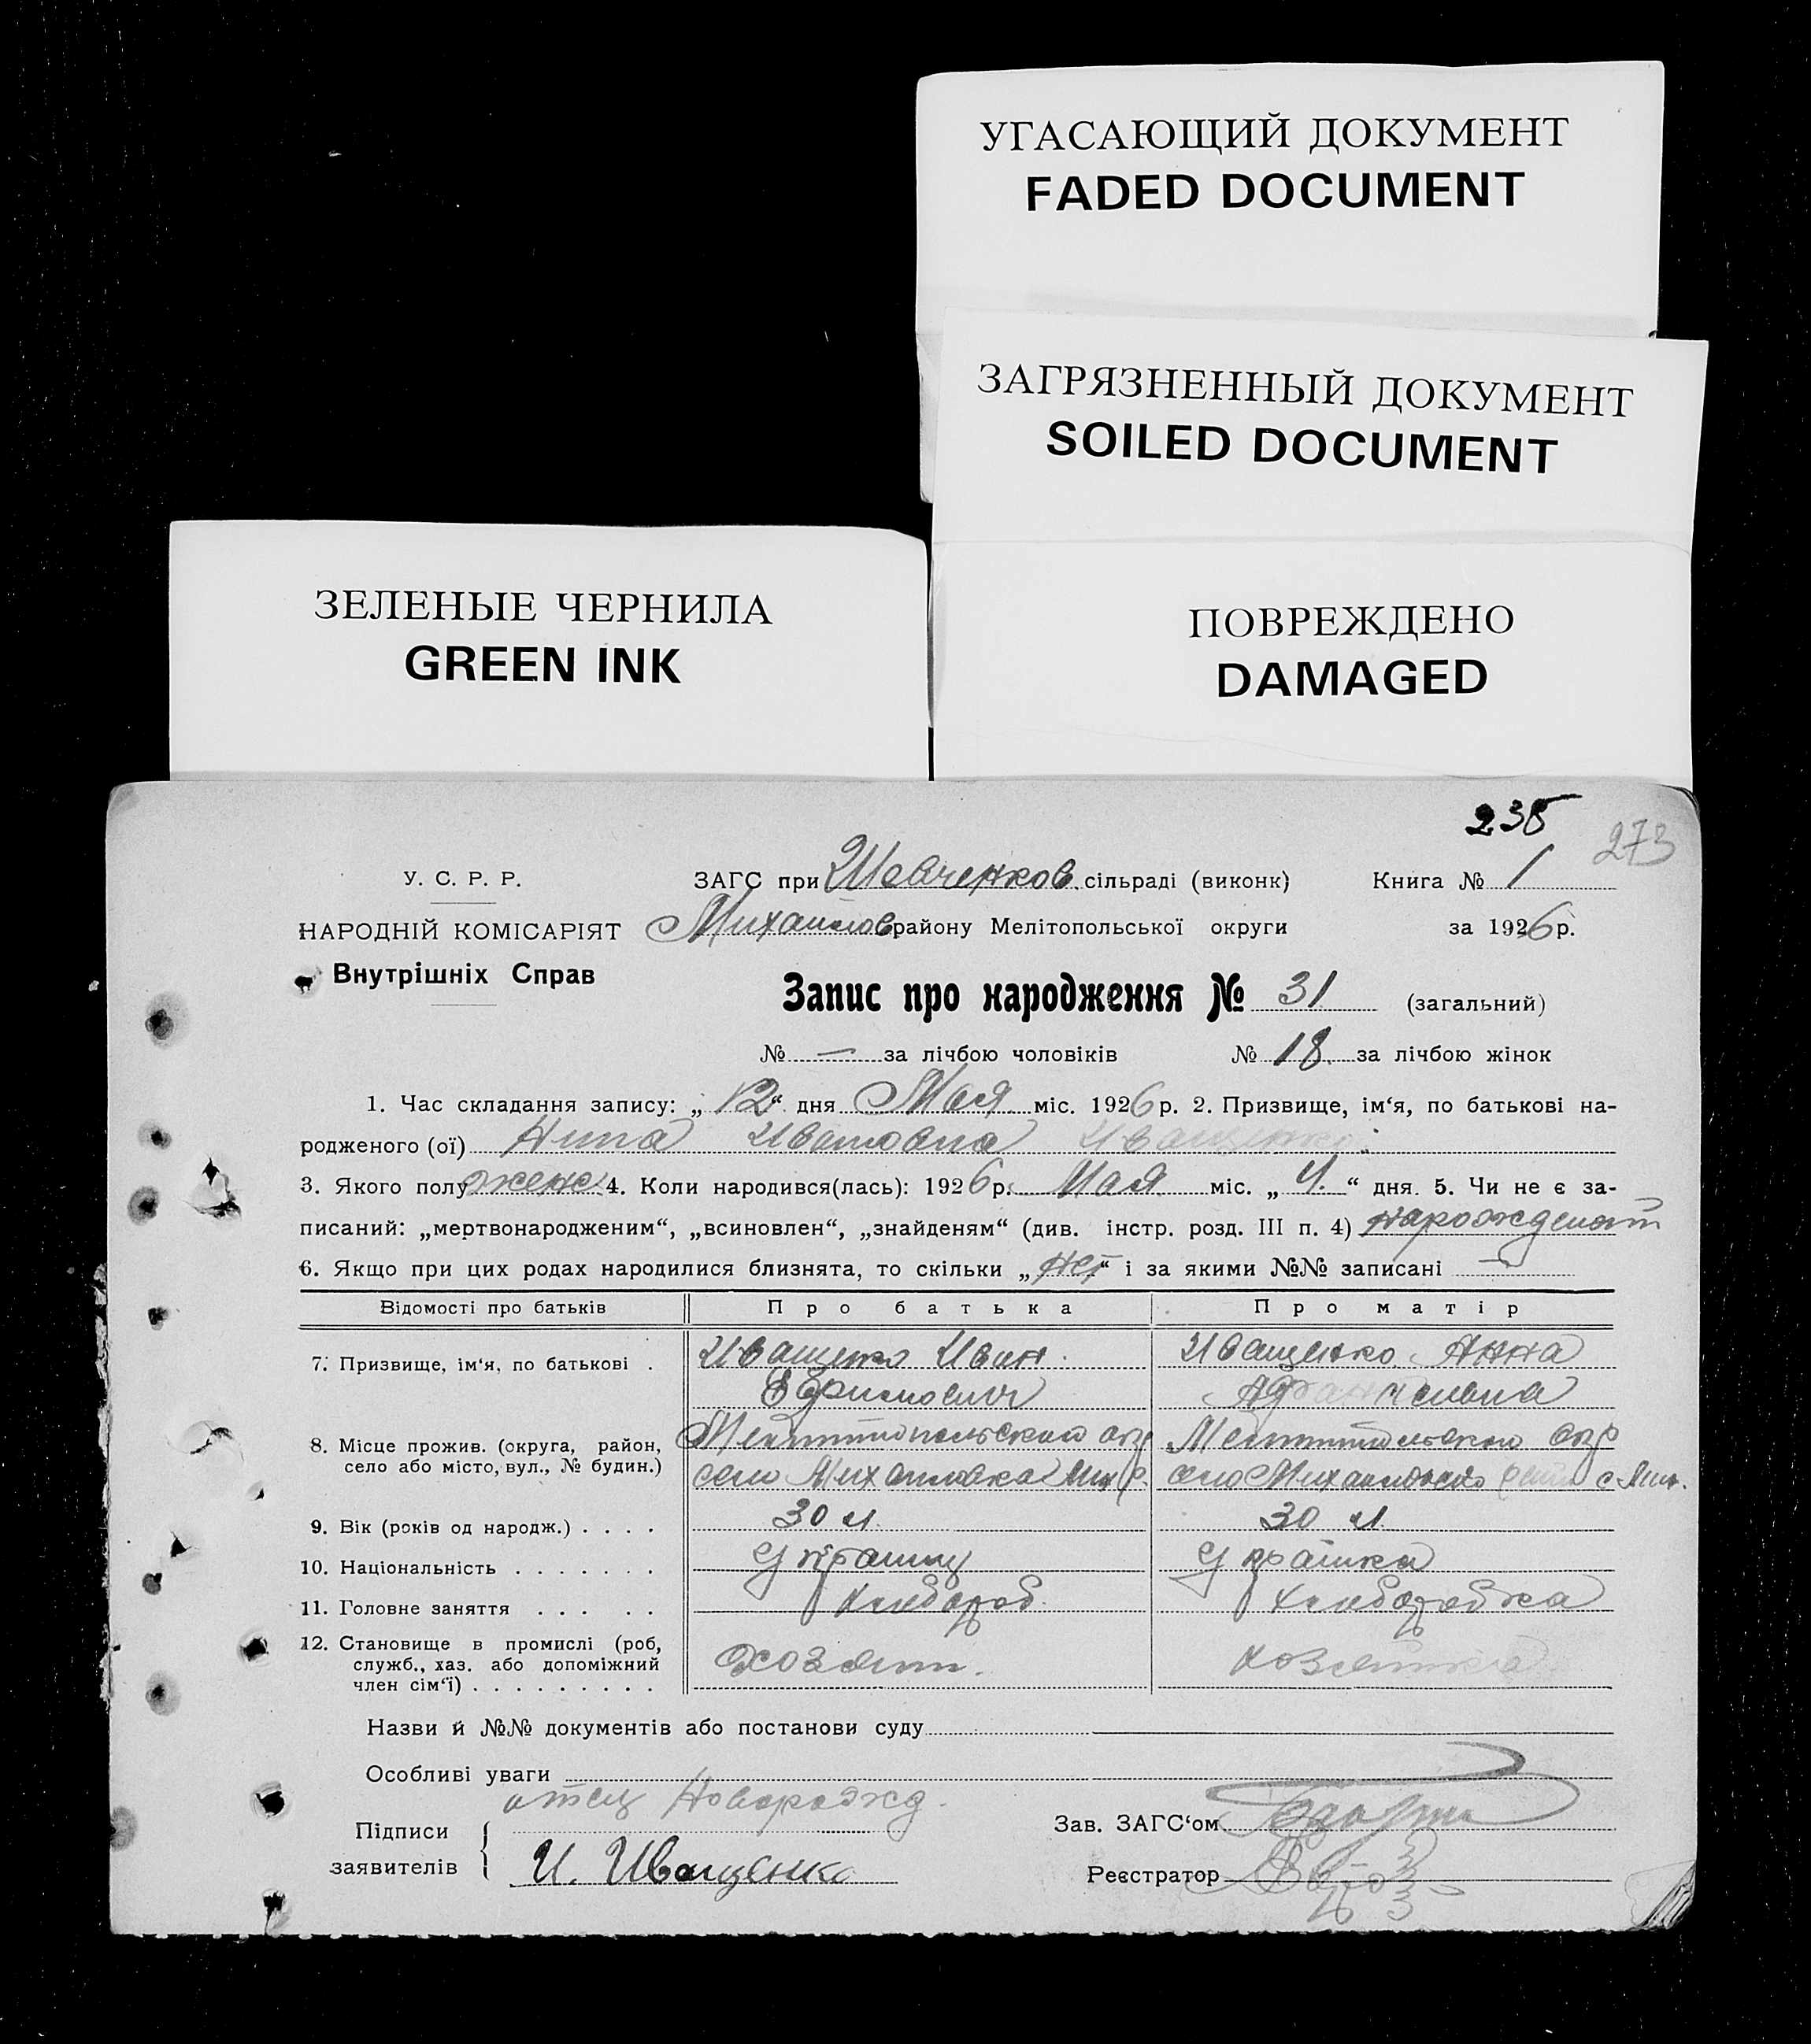 УГАСАЮЩИЙ ДОКУМЕНТ
FADED DOCUMENT
ЗАГРЯЗНЕННЫЙ ДОКУМЕНТ
SOILED DOCUMENT
ЗЕЛЕНЫЕ ЧЕРНИЛА
GREEN INK
ПОВРЕЖДЕНО
DAMAGED
235 273
У. С. Р. Р. ЗАГС при Шевченков. сільраді (виконк) Книга № 1
НАРОДНІЙ КОМІСАРІЯТ Михайлов району Мелітопольської округи за 1926 р.
Внутрішніх Справ
Запис про народження № 31 (загальний)
№ — за лічбою чоловіків № 18 за лічбою жінок
1. Час складання запису: „12“ дня Мая міс. 1926 р. 2. Призвище, ім‘я, по батькові на-
родженого (ої) Нина Ивановна Иващенко
3. Якого полу женс 4. Коли народився(лась): 1926 р. Мая міс. „4.“ дня. 5. Чи не є за-
писаний: „мертвонародженим“, „всиновлен“, „знайденям“ (див. інстр. розд. III п. 4)
6. Якщо при цих родах народилися близнята, то скільки „нет“ і за якими №№ записані —
Відомості про батьків Про батька Про матір
7. Призвище, ім‘я, по батькові . Иващенко Иван Иващенко Анна
8. Місце прожив. (округа, район, Мелитопольский окр Мелитопольско окр
село або місто, вул., № будин.) село Михайловка Мих р. село
9. Вік (років од народж.) . . . . 30 л. 30 л
10. Національність . . . . . . . Украинец Украинка
11. Головне заняття . . . . . Хлебороб Хлеборобка
12. Становище в промислі (роб, Хозяин. Хозяйка
служб., хаз. або допоміжний
член сім‘ї) . . . . . . . . .
Назви й №№ документів або постанови суду
Особливі уваги
отецНоворожд.
Підписи Зав. ЗАГС‘ом
заявителів И. Иващенко Реєстратор